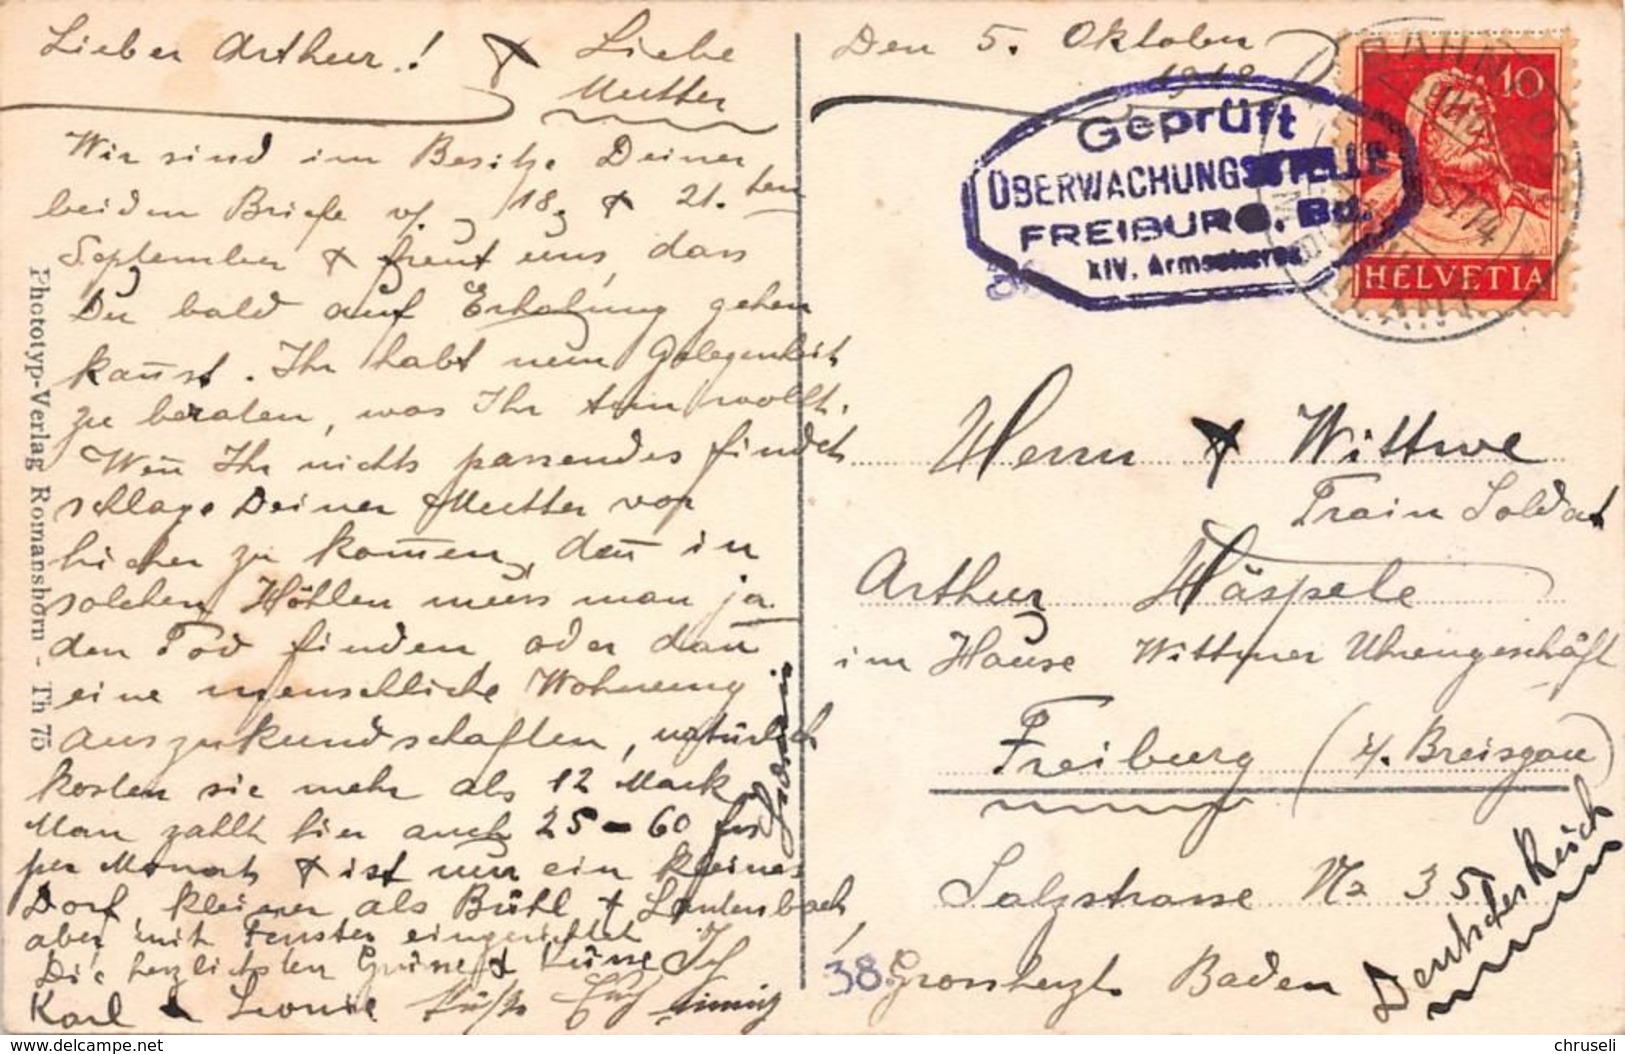 Lieber Arthur! + Liebe
Mutter
Wir sind im Besitze Deiner
beiden Briefe v. 18. + 21.ten
September + freut uns, dass
Du bald auf Erholung gehen
kanst. Ihr habt nun Gelegenheit
zu beraten, was Ihr tun wollt.
Wen Ihr nichts passendes findet
schlage Deiner Mutter vor
hieher zu komen, den in
solchen Höhlen muss man ja
den Tod finden oder dan
eine menschliche Wohnung
auszukundschaften, natürlich
kosten sie mehr als 12 Mark
Man zahlt hier auch 25-60 frs
per Monat, + ist nur ein kleines
Dorf, kleiner als Bühl + Lautenbach,
aber mit Fenster eingerichtet
Die herzlichsten Grüsse + Küsse
Karl + Leonie
Phototyp-Verlag Romanshorn - Th 75
Den 5. Oktober
1918
Geprüft
ÜBERWACHUNGSSTELLE
FREIBURG. Bd.
XIV. Armeekorps
10
HELVETIA
Herrn + Wittwe
Train Soldat
Arthur Häspele
im Hause Wittmer Uhrengeschäft
Freiburg (i/. Breisgau)
Salzstrasse No 35
38. Grossherzgt. Baden
Deutsches Reich
www.delcampe.net
chruseli